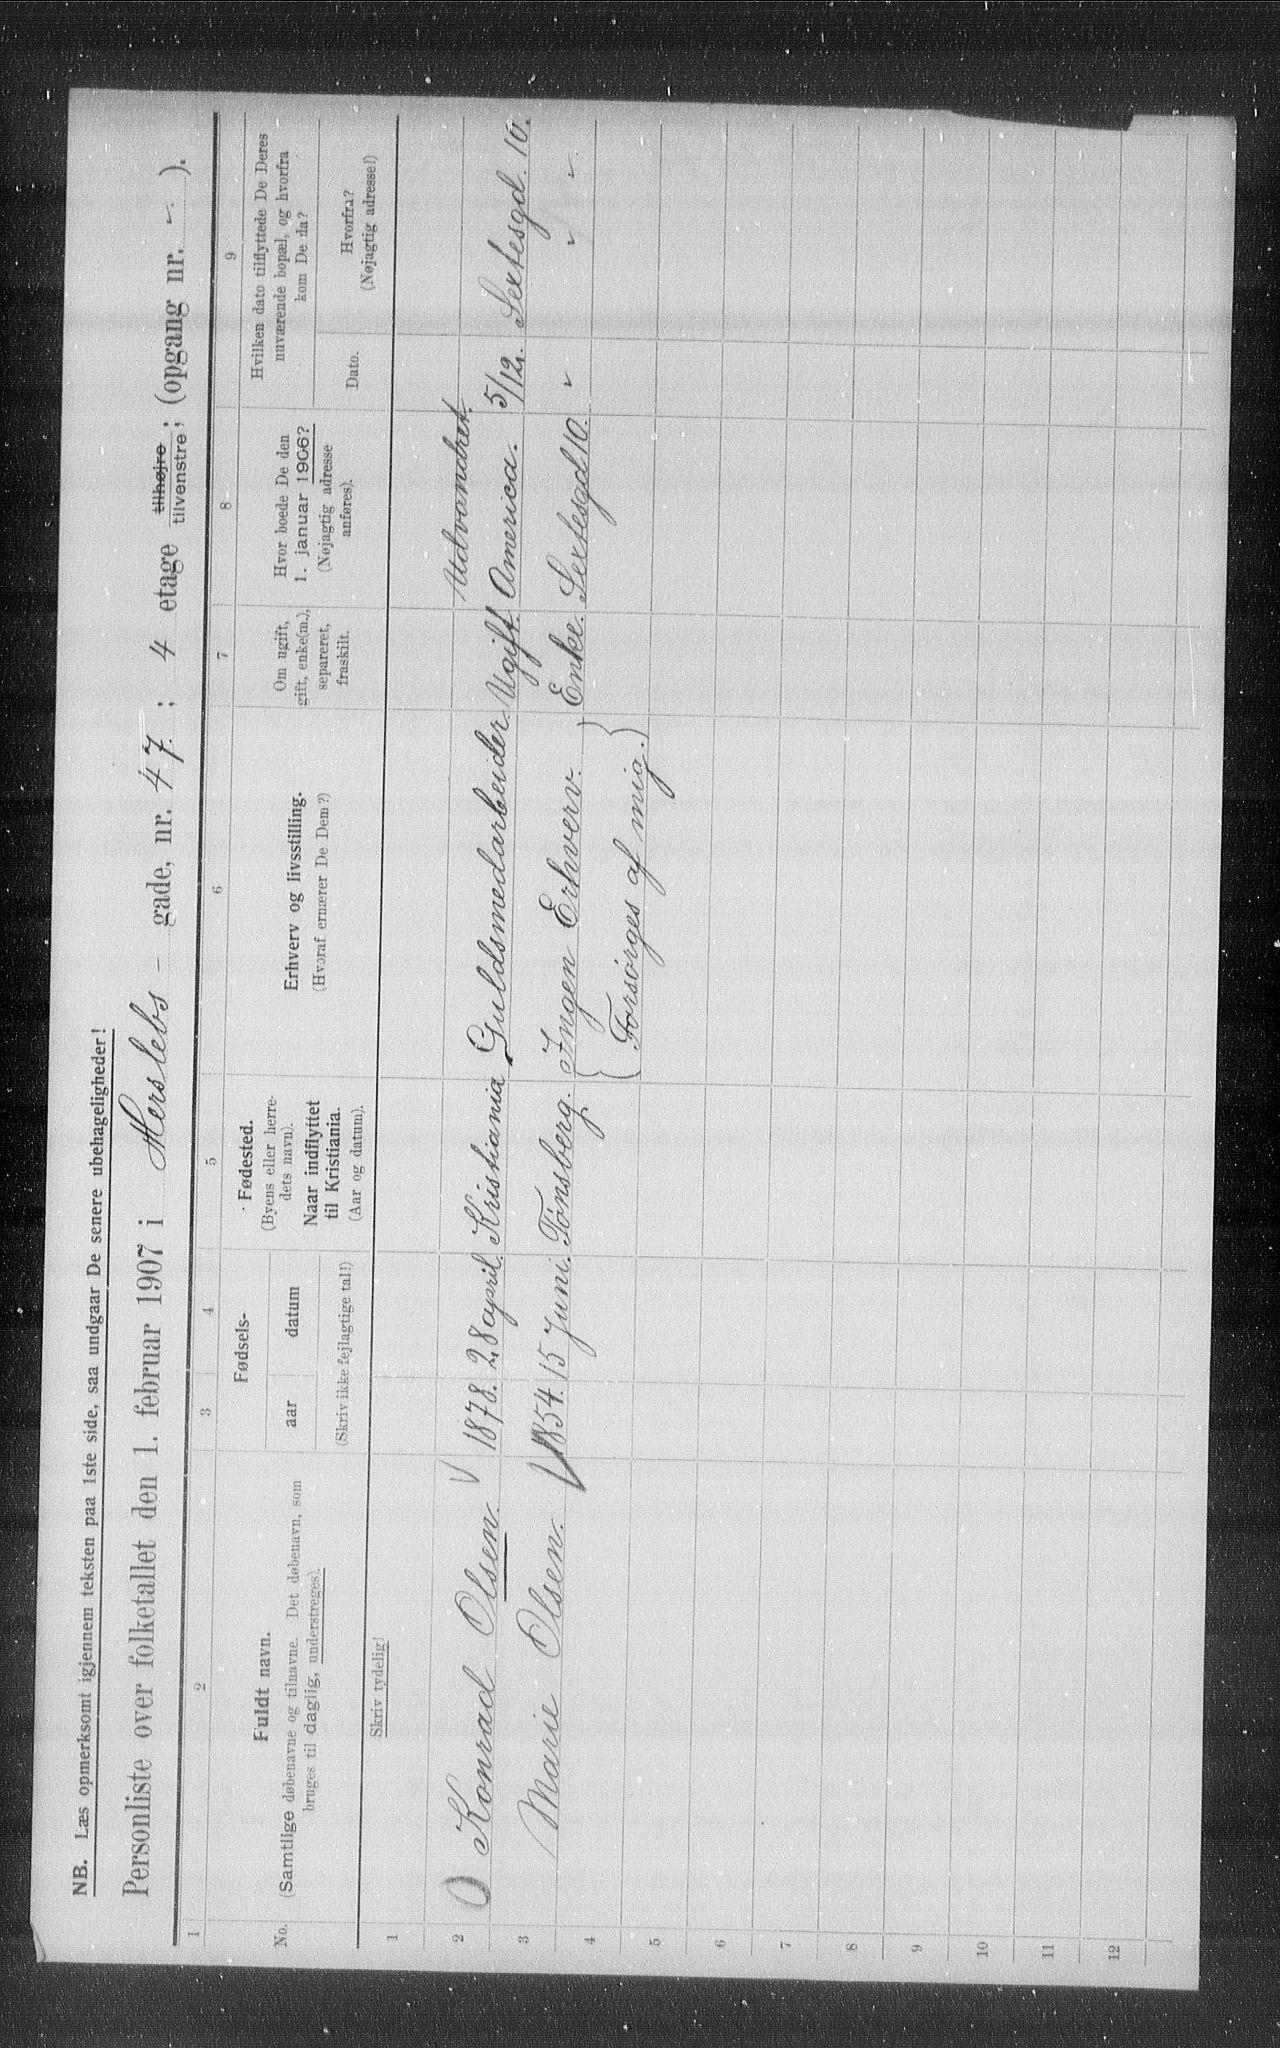 NB. Læs opmerksomt igjennem teksten paa 1ste side, saa undgaar De senere ubehageligheder!
Personliste over folketallet den 1. februar 1907 i Herslebs - gade, nr. 47; 4 etage tilhøjre tilvenstre; (opgang nr. ).
1 2 3 4 5 6 7 8 9
No.
Fuldt navn.
(Samtlige døbenavne og tilnavne. Det døbenavn, som
bruges til daglig, understreges).
Skriv tydelig!
Fødsels-
aar datum
(Skriv ikke fejlagtige tal!)
Fødested.
(Byens eller herre-
dets navn).
Naar indflyttet
til Kristiania.
(Aar og datum).
Erhverv og livsstilling.
(Hvoraf ernærer De Dem?)
Om ugift,
gift, enke(m.),
separeret,
fraskilt.
Hvor boede De den
1. januar 1906?
(Nøjagtig adresse
anføres).
Hvilken dato tilflyttede De Deres
nuværende bopæl, og hvorfra
kom De da?
Dato.
Hvorfra?
(Nøjagtig adresse!)
1
Udvandret.
2 Konrad Olsen. 1878. 28 april. Kristiania Guldsmedarbeider. Ugift. America. 5/12. Sextesgd. 10.
3 Marie Olsen. 1854. 15 Juni. Tönsberg. {Ingen Erhverv.} Enke. Sextesgd 10.
4 {Forsörges af mig.}
5
6
7
8
9
10
11
12